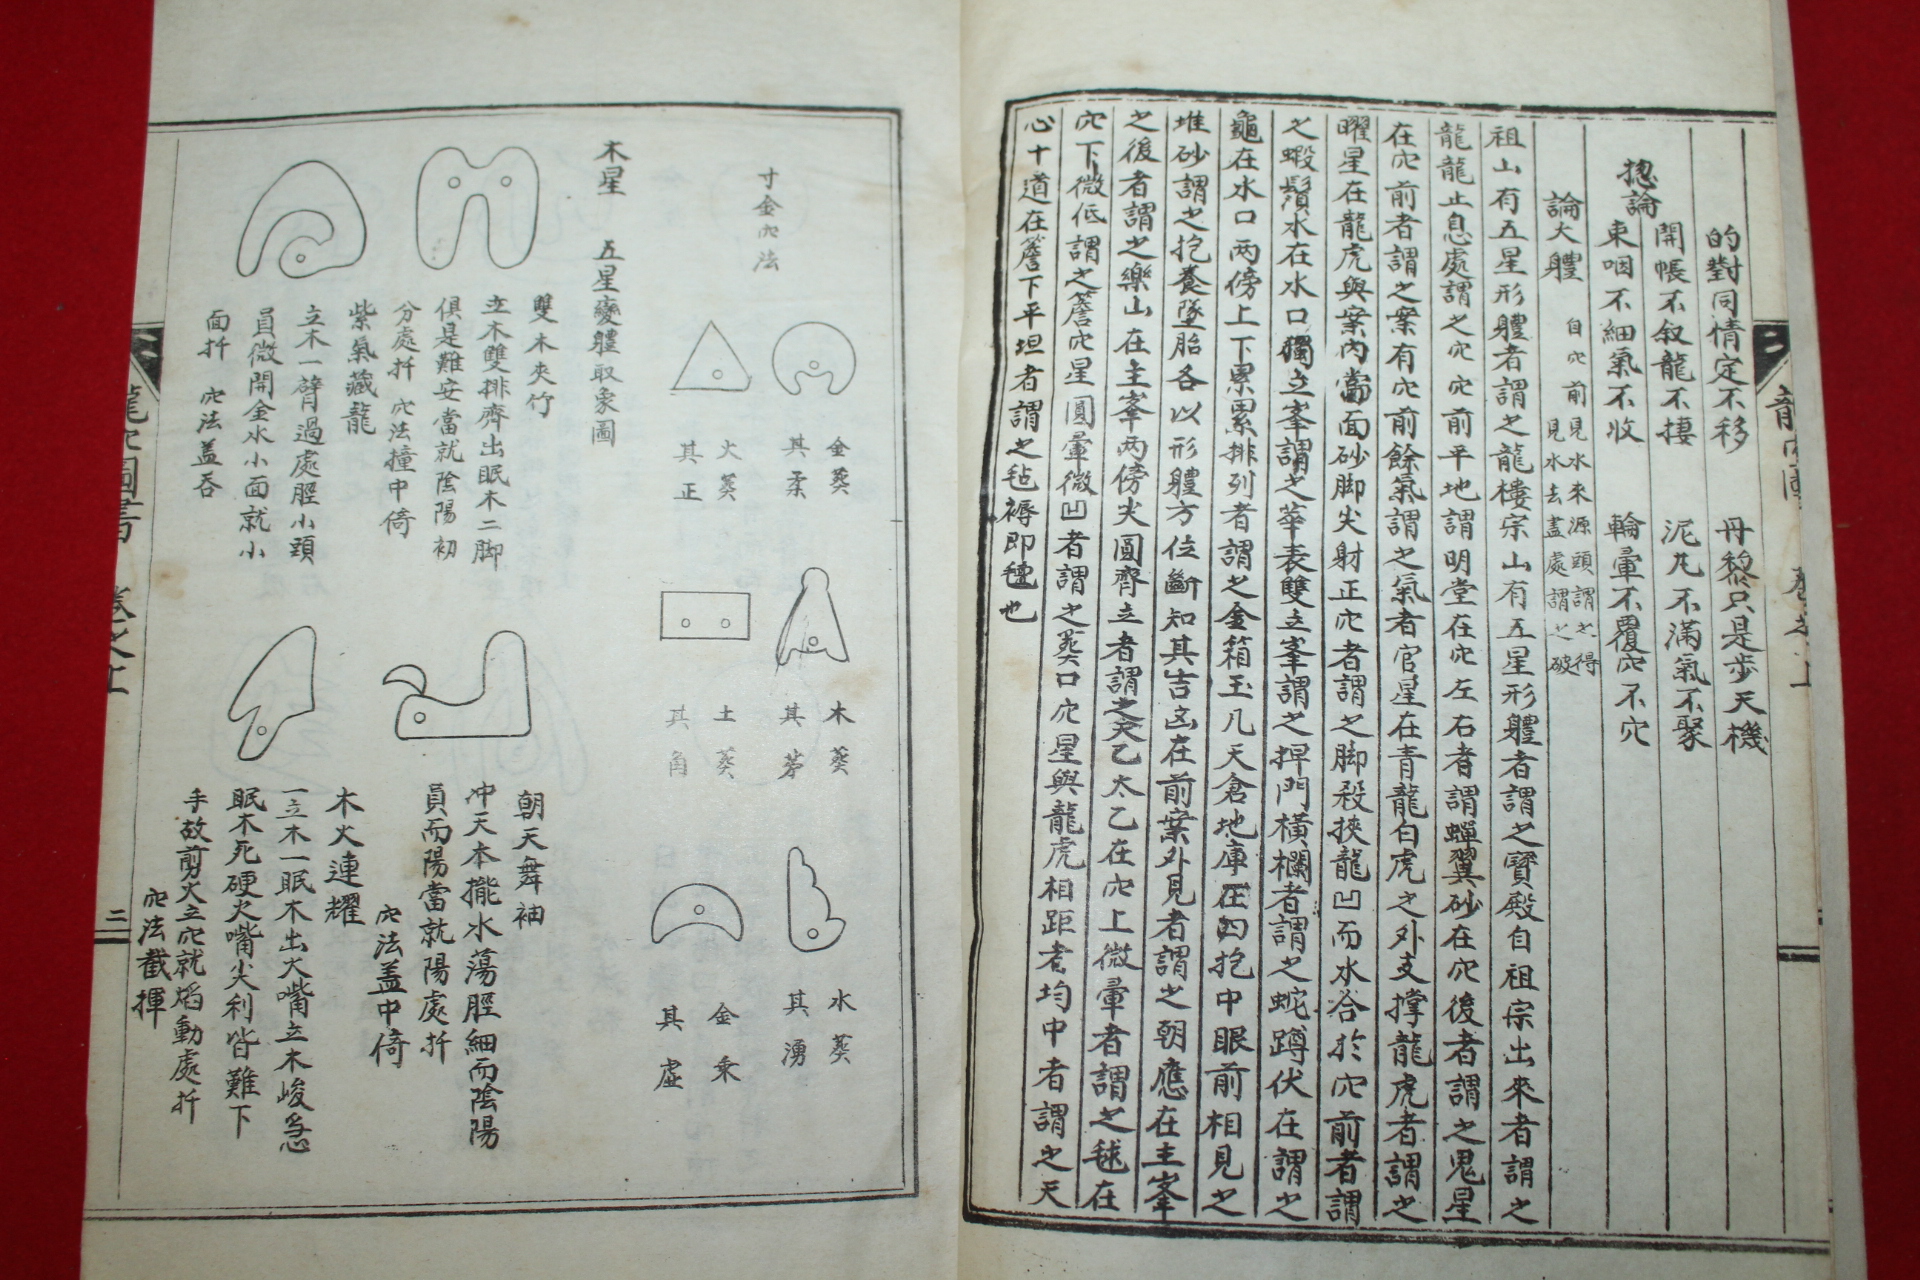 的對同情定不移 丹黎只是步天機
開帳不叙龍不捿 泥丸不滿氣不聚
揔論
束咽不細氣不收 輪暈不覆穴不穴
論大軆 自穴前見水來源頭謂之得
見水去盡處謂之破
祖山有五星形軆者謂之龍樓宗山有五星形軆者謂之寶殿自祖宗出來者謂之
龍龍止息處謂之穴穴前平地謂明堂在穴左右者謂蟬翼砂在穴後者謂之鬼星
在穴前者謂之案有穴前餘氣謂之氣者官星在青龍白虎之外支撑龍虎者謂之
曜星在龍虎與案內當面砂脚尖射正穴者謂之脚殺挾龍凹而水谷於穴前者謂
之蝦鬚水在水口獨立峯謂之華表雙立峯謂之捍門橫欄者謂之蛇蹲伏在謂之
龜在水口两傍上下累累排列者謂之金箱玉几天倉地庫在四抱中眼前相見之
堆砂謂之抱養墜胎各以形軆方位斷知其吉凶在前案外見者謂之朝應在主峯
之後者謂之樂山在主峯两傍尖圓齊立者謂之天乙太乙在穴上微暈者謂之毬在
穴下微低謂之簷穴星圓暈微凹者謂之葬口穴星與龍虎相距者均中者謂之天
心十道在簷下平坦者謂之毡褥即毬也
寸金穴法
金葬其柔
火葬其正
木葬其茅
土葬其角
水葬其湧
金乘其虛
木星 五星變軆取象圖
雙木夾竹
立木雙排齊出眠木二脚
俱是難安當就陰陽初
分處扦 穴法撞中倚
紫氣藏龍
立木一臂過處脛小頭
員微開金水小面就小
面扦 穴法盖吞
朝天舞袖
冲天本擺水蕩脛細而陰陽
員而陽當就陽處扦
穴法盖中倚
木火連耀
一立木一眠木出火嘴立木峻急
眠木死硬火嘴尖利皆難下
手故剪火立穴就焰動處扦
穴法截揮
龍穴圖書 卷之上 二